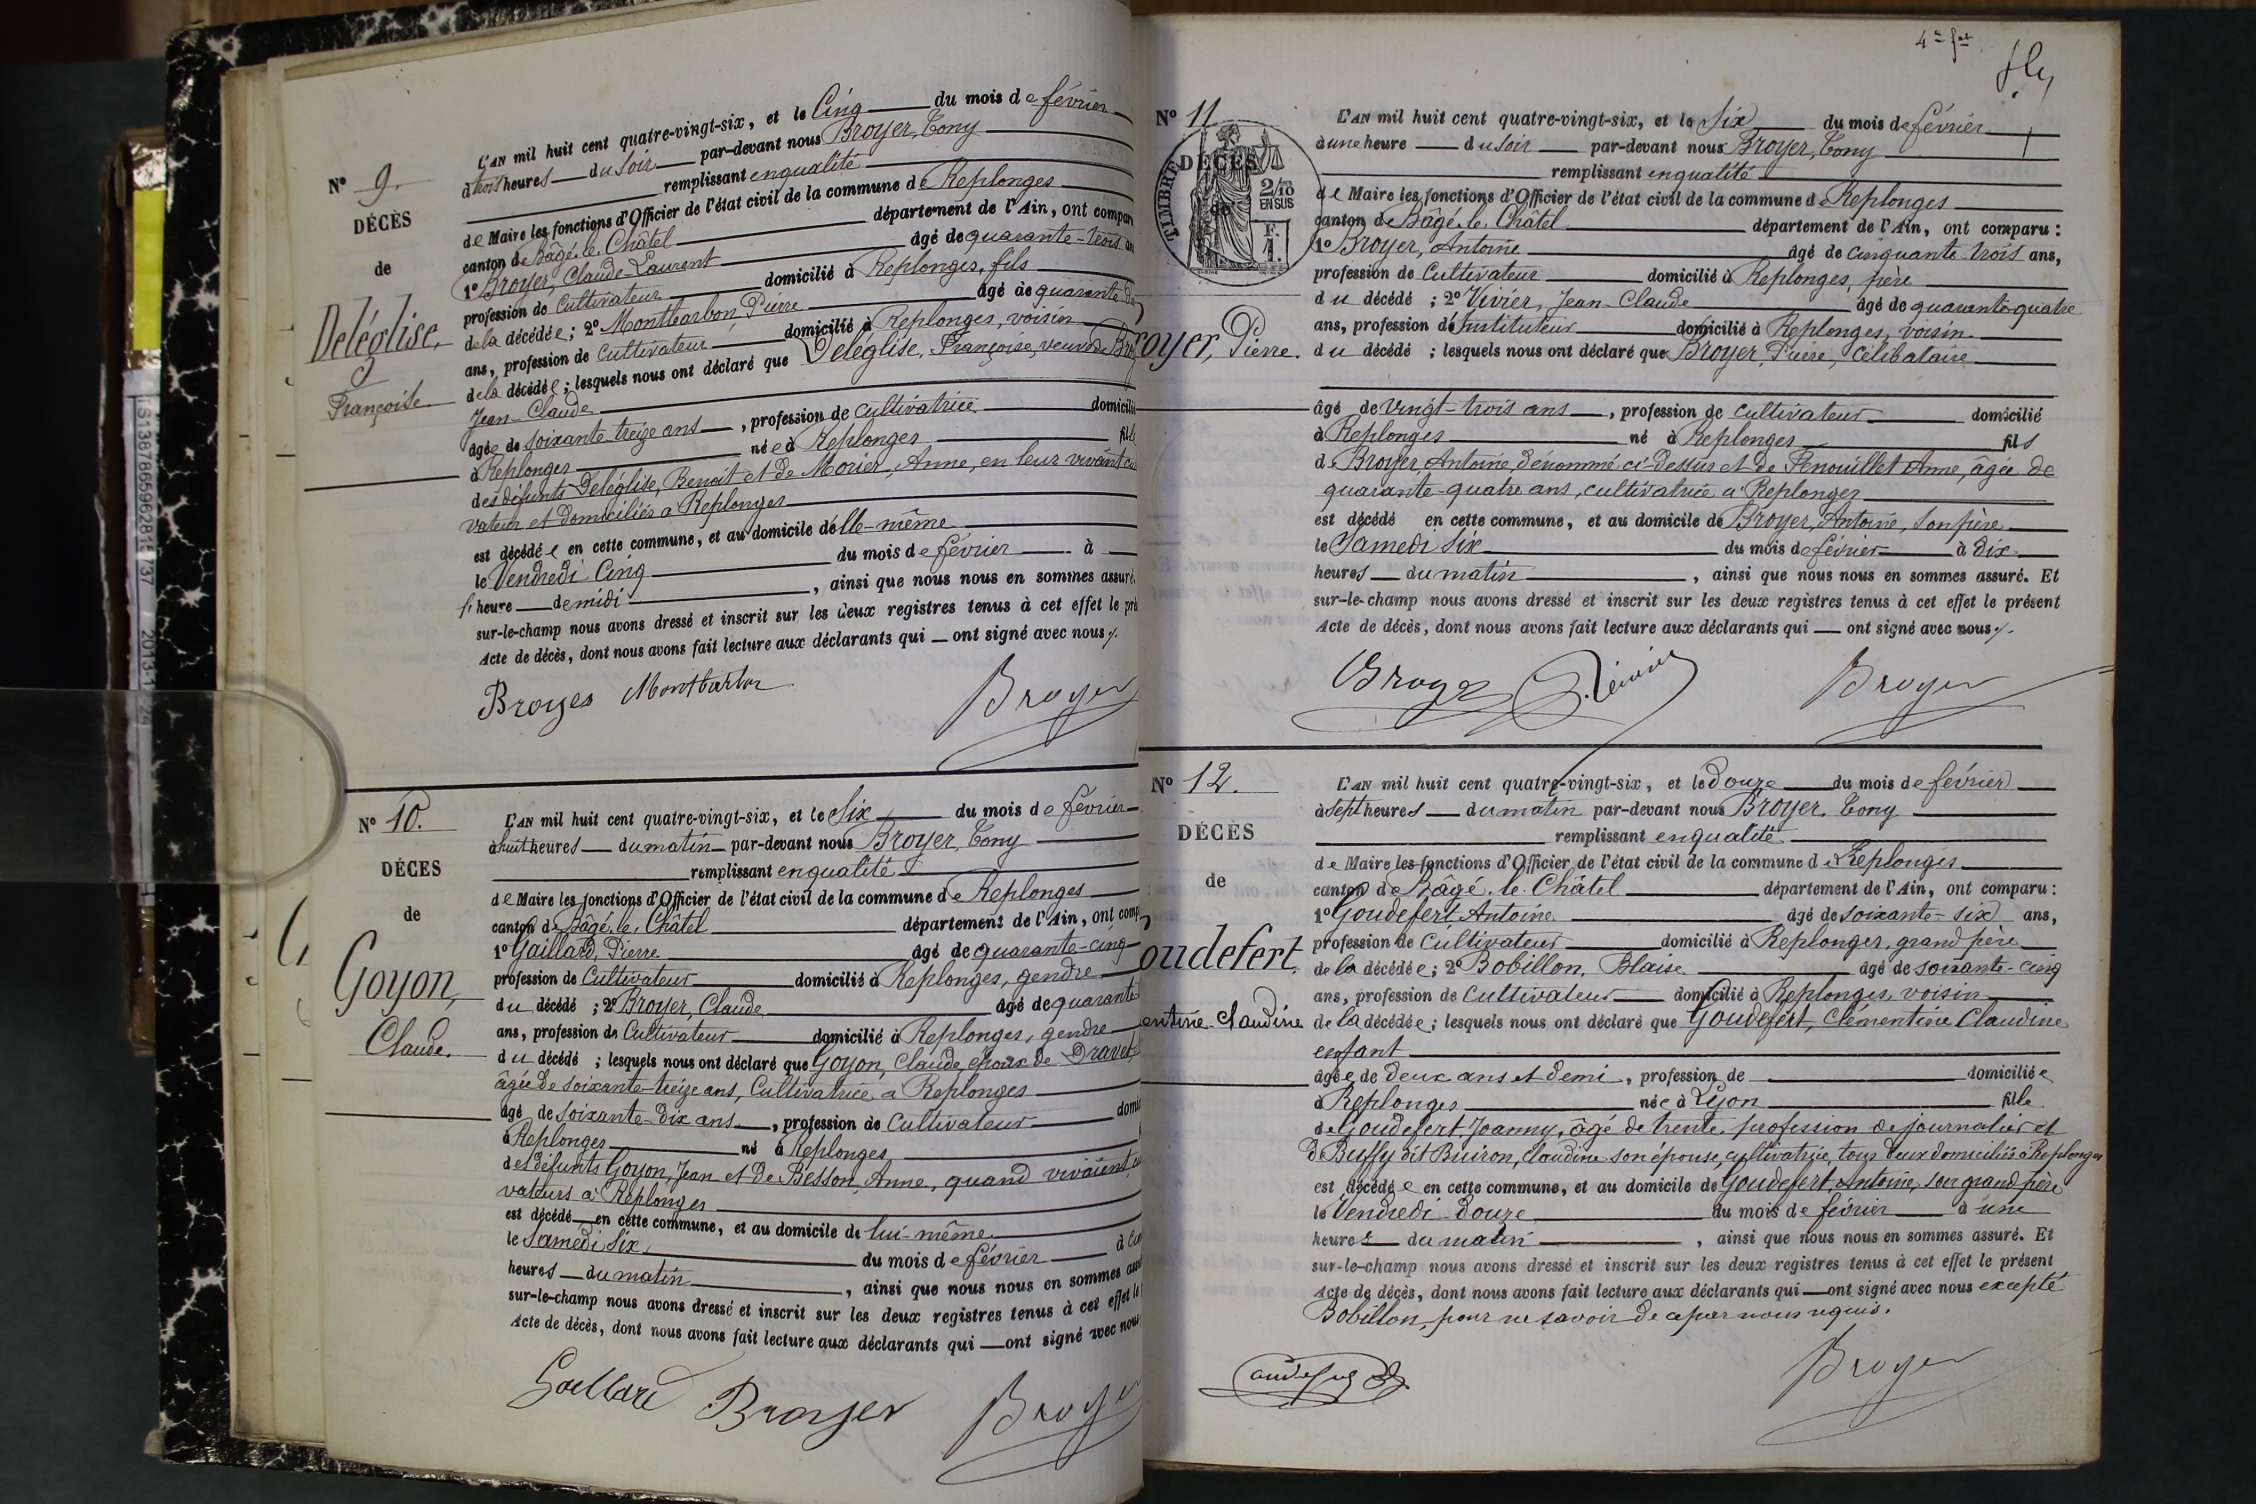 Nº 9.
DÉCÈS
de
Deléglise,
Françoise
L'AN mil huit cent quatre-vingt-six, et le Cinq du mois de février
à trois heures du soir par-devant nous Broyer, Tony
remplissant en qualité
de Maire les fonctions d'Officier de l'état civil de la commune de Replonges
canton de Bâgé-le-Châtel département de l'Ain, ont compar
1º Broyer, Claude-Laurent âgé de quarante-trois an
profession de cultivateur domicilié à Replonges, fils
de la décédée; 2º Montbarbon Pierre âgé de quarante
ans, profession de cultivateur domicilié à Replonges, voisin
de la décédée; lesquels nous ont déclaré que Deléglise, Françoise, veuve de Bro
Jean-Claude
âgée de soixante-treize ans, profession de cultivatrice domicilié
à Replonges née à Replonges fil
des défunts Deléglise, Benoît et de Morier, Anne, en leur vivant cu
vateurs et domiciliés à Replonges
est décédée en cette commune, et au domicile d'elle-même
le Vendredi Cinq du mois de février à
heure de midi, ainsi que nous nous en sommes assuré.
sur-le-champ nous avons dressé et inscrit sur les deux registres tenus à cet effet le pré
Acte de décès, dont nous avons fait lecture aux déclarants qui ont signé avec nous
Broyer Montbarbon Broyer
Nº 10.
DÉCES
de
Goyon,
Claude.
L'AN mil huit cent quatre-vingt-six, et le Six du mois de février
à huit heures du matin par-devant nous Broyer, Tony
remplissant en qualité
de Maire les fonctions d'Officier de l'état civil de la commune de Replonges
canton de Bâgé-le-Châtel département de l'Ain, ont comp
1º Gaillard, Pierre âgé de quarante-cinq
profession de cultivateur domicilié à Replonges, gendre
du décédé; 2º Broyer, Claude âgé de quarante
ans, profession de cultivateur domicilié à Replonges, gendre
du décédé; lesquels nous ont déclaré que Goyon, Claude, époux de Dravet
âgée de soixante-treize ans, Cultivatrice à Replonges
âgé de soixante-dix ans, profession de cultivateur domi
à Replonges né à Replonges
des défunts Goyon, Jean et de Besson, Anne, quand vivaient, cu
vateurs à Replonges
est décédé en cette commune, et au domicile de lui-même
le Samedi Six du mois de février à
heures du matin, ainsi que nous nous en sommes assu
sur-le-champ nous avons dressé et inscrit sur les deux registres tenus à cet effet le
Acte de décès, dont nous avons fait lecture aux déclarants qui ont signé avec nous
Gaillard Broyer Broyer
Nº 11
DÉCÈS
TIMBRE
2/10
EN SUS
F.
1.
royer, Pierre.
L'AN mil huit cent quatre-vingt-six, et le Six du mois de février
à une heure du soir par-devant nous Broyer, Tony
remplissant en qualité
de Maire les fonctions d'Officier de l'état civil de la commune de Replonges
canton de Bâgé-le-Châtel département de l'Ain, ont comparu:
1º Broyer, Antoine âgé de cinquante-trois ans,
profession de cultivateur domicilié à Replonges, père
du décédé; 2º Vivier, Jean-Claude âgé de quarante-quatre
ans, profession d'Instituteur domicilié à Replonges, voisin
du décédé; lesquels nous ont déclaré que Broyer, Pierre, célibataire
âgé de vingt-trois ans, profession de cultivateur domicilié
à Replonges né à Replonges fils
de Broyer, Antoine, dénommé ci-dessus et de Fenouillet Anne, âgée de
quarante-quatre ans, cultivatrice à Replonges
est décédé en cette commune, et au domicile de Broyer, Antoine, son père
le Samedi Six du mois de février à dix
heures du matin, ainsi que nous nous en sommes assuré. Et
sur-le-champ nous avons dressé et inscrit sur les deux registres tenus à cet effet le présent
Acte de décès, dont nous avons fait lecture aux déclarants qui ont signé avec nous
Broyer Vivier Broyer
Nº 12.
DÉCÈS
de
oudefert,
entine-Claudine
L'AN mil huit cent quatre-vingt-six, et le Douze du mois de février
à sept heures du matin par-devant nous Broyer, Tony
remplissant en qualité
de Maire les fonctions d'Officier de l'état civil de la commune de Replonges
canton de Bâgé-le-Châtel département de l'Ain, ont comparu:
1º Goudefert Antoine âgé de soixante-six ans,
profession de cultivateur domicilié à Replonges, grand père
de la décédée; 2º Bobillon, Blaise âgé de soixante-cinq
ans, profession de cultivateur domicilié à Replonges, voisin
de la décédée; lesquels nous ont déclaré que Goudefert, Clémentine Claudine
enfant
âgée de deux ans et demi, profession de domiciliée
à Replonges née à Lyon fille
de Goudefert, Joanny, âgé de trente, profession de journalier et
de Buffy dit Buiron, Claudine son épouse, cultivatrice, tous deux domiciliés à Replonges
est décédée en cette commune, et au domicile de Goudefert, Antoine, son grand père
le Vendredi Douze du mois de février à une
heure du matin, ainsi que nous nous en sommes assuré. Et
sur-le-champ nous avons dressé et inscrit sur les deux registres tenus à cet effet le présent
Acte de décès, dont nous avons fait lecture aux déclarants qui ont signé avec nous excepté
Bobillon, pour ne savoir de ce par nous requis.
Broyer